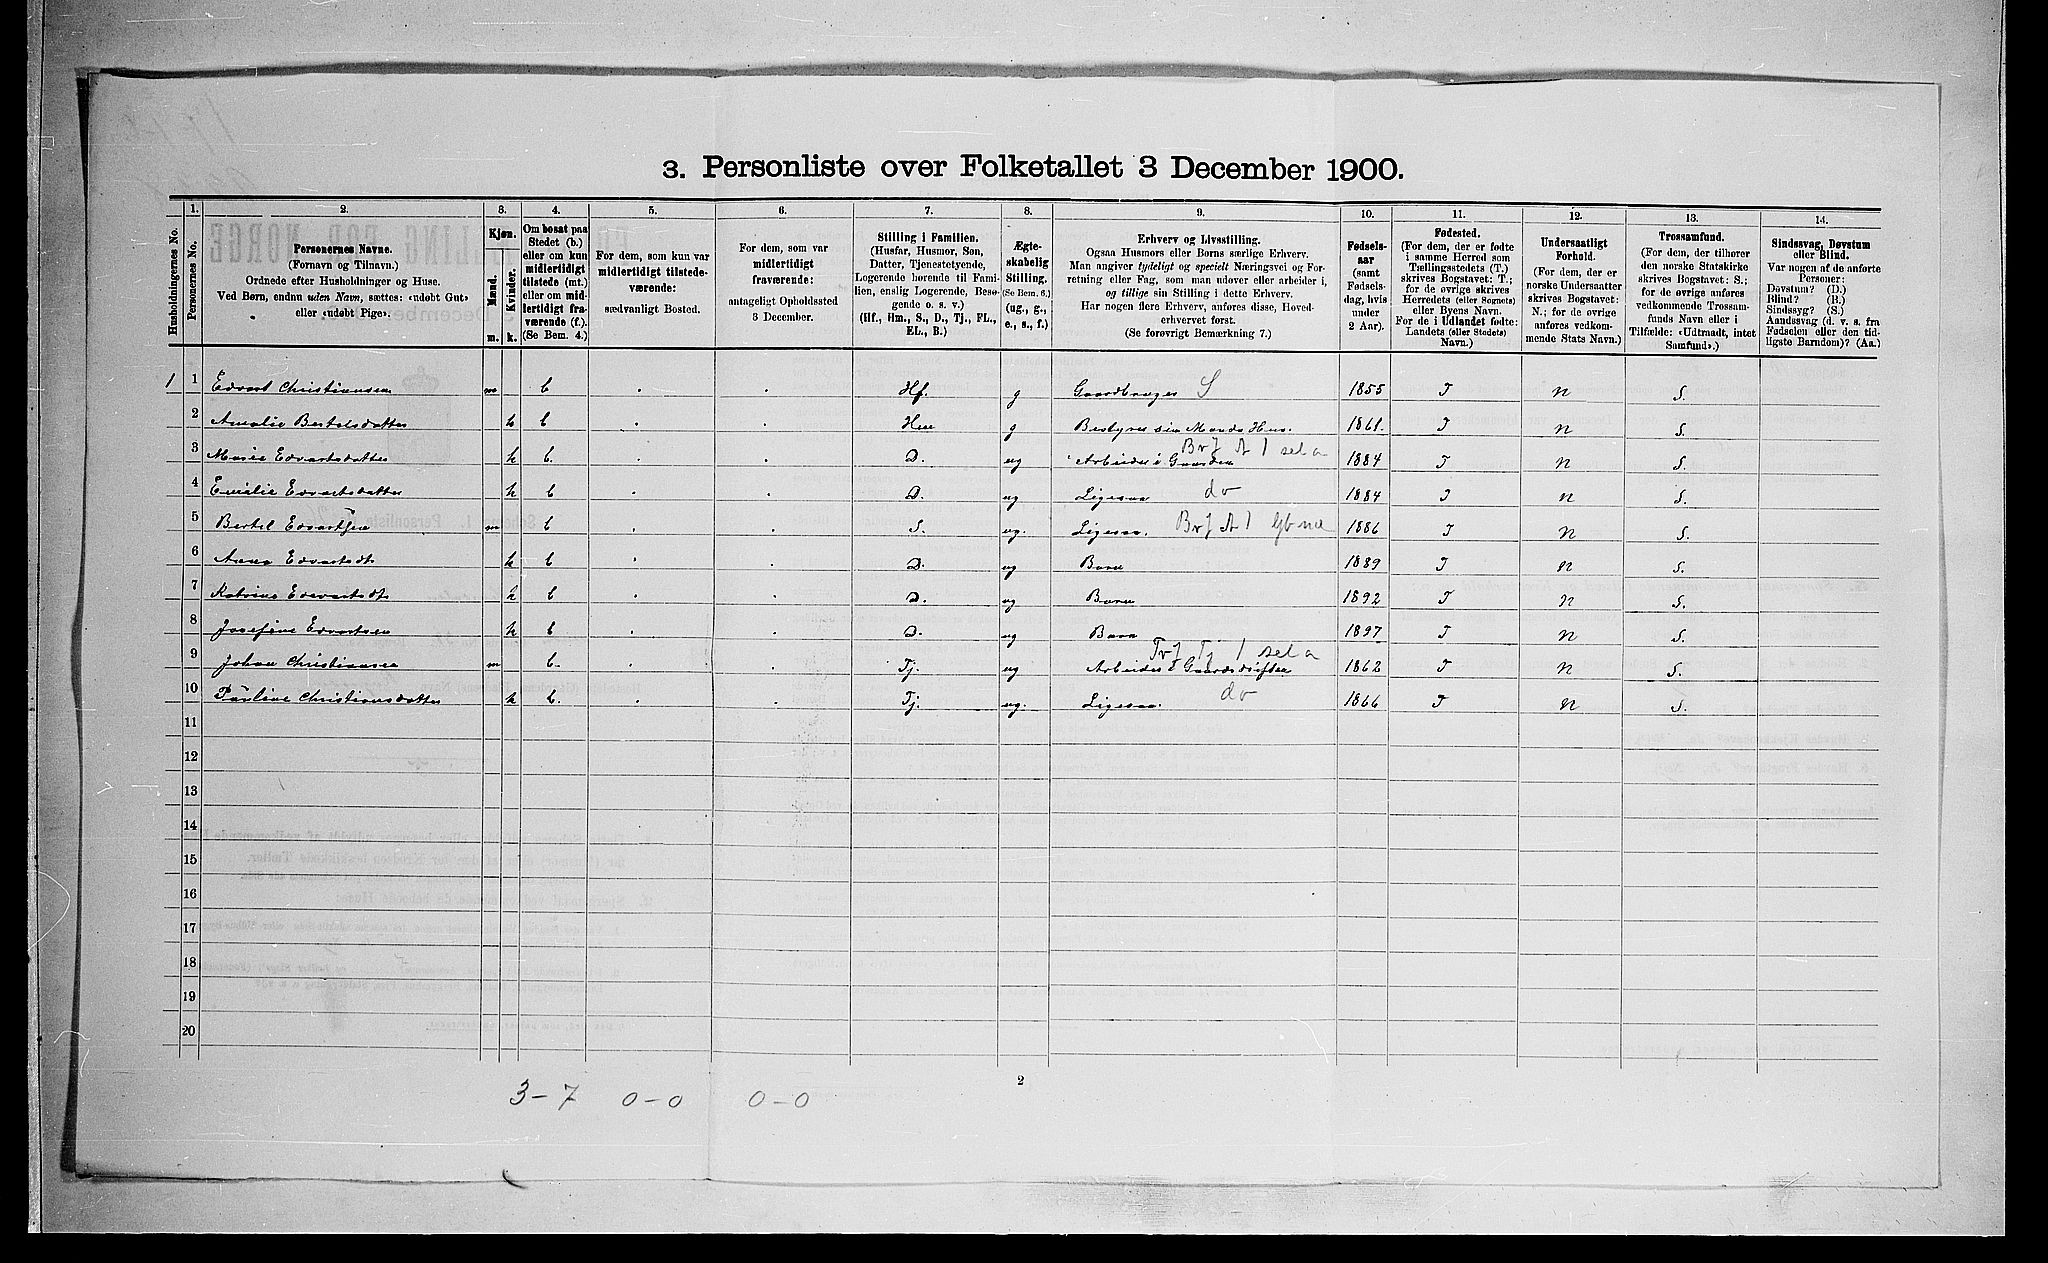 3. Personliste over Folketallet 3 December 1900.
Husholdningernes No.
1.
Personernes No.
2.
Personernes Navne.
(Fornavn og Tilnavn.)
Ordnede efter Husholdninger og Huse.
Ved Børn, endnu uden Navn, sættes: «udøbt Gut»
eller «udøbt Pige».
3.
Kjøn.
Mænd.
Kvinder.
m.
k.
4.
Om bosat paa
Stedet (b.)
eller om kun
midlertidigt
tilstede (mt.)
eller om mid-
lertidigt fra-
værende (f.).
(Se Bem. 4.)
5.
For dem, som kun var
midlertidigt tilstede-
værende:
sædvanligt Bosted.
6.
For dem, som var
midlertidigt
fraværende:
antageligt Opholdssted
3 December.
7.
Stilling i Familien.
(Husfar, Husmor, Søn,
Datter, Tjenestetyende,
Logerende hørende til Fami-
lien, enslig Logerende, Besø-
gende o. s. v.)
(Hf., Hm., S., D., Tj., FL.,
EL., B.)
8.
Ægte-
skabelig
Stilling.
(Se Bem. 6.)
(ug., g.,
e., s., f.)
9.
Erhverv og Livsstilling.
Ogsaa Husmors eller Børns særlige Erhverv.
Man angiver tydeligt og specielt Næringsvei og For-
retning eller Fag, som man udøver eller arbeider i,
og tillige sin Stilling i dette Erhverv.
Har nogen flere Erhverv, anføres disse, Hoved-
erhvervet først.
(Se forøvrigt Bemærkning 7.)
10.
Fødsels-
aar
(samt
Fødsels-
dag, hvis
under
2 Aar).
11.
Fødested.
(For dem, der er fødte
i samme Herred som
Tællingsstedets (T.)
skrives Bogstavet: T.;
for de øvrige skrives
Herredets (eller Sognets)
eller Byens Navn.
For de i Udlandet fødte:
Landets (eller Stedets)
Navn.)
12.
Undersaatligt
Forhold.
(For dem, der er
norske Undersaatter
skrives Bogstavet:
N.; for de øvrige
anføres vedkom-
mende Stats Navn.)
13.
Trossamfund.
(For dem, der tilhører
den norske Statskirke
skrives Bogstavet: S.;
for de øvrige anføres
vedkommende Trossam-
funds Navn eller i
Tilfælde: «Udtraadt, intet
Samfund».)
14.
Sindssvag, Døvstum
eller Blind.
Var nogen af de anførte
Personer:
Døvstum? (D.)
Blind? (B.)
Sindssyg? (S.)
Aandssvag (d. v. s. fra
Fødselen eller den tid-
ligste Barndom)? (Aa.)
1 1 Edvart Christiansen m b Hf. g Gaardbruger S 1855 T N S.
2 Amalie Bertelsdatter k b Hm g Bestyrer sin Mands Hus. 1861. T N S.
3 Marie Edvartsdatter k b. D. ug Arbeider i Gaarden 1884 T N S.
4 Emilie Edvartsdatter k b D. ug Ligesaa do 1884 T N S.
5 Bertel Edvartsen m b S. ug. Ligesaa. 1886 T N S.
6 Anna Edvartsdt k b D. ug Barn 1889 T N S.
7 Katrine Edvartsdt k b D. ug Barn 1892 T N S.
8 Josefine Edvartsen k b D. ug Barn 1897 T N S.
9 Johan Christiansen m b. Tj. ug Arbeider i Gaardsdriften 1862 T N S.
10 Pauline Christiansdatter k b. Tj. ug. Ligesaa. do 1866 T N S.
11
12
13
14
15
16
17
18
19
20
2
3-7 0-0 0-0